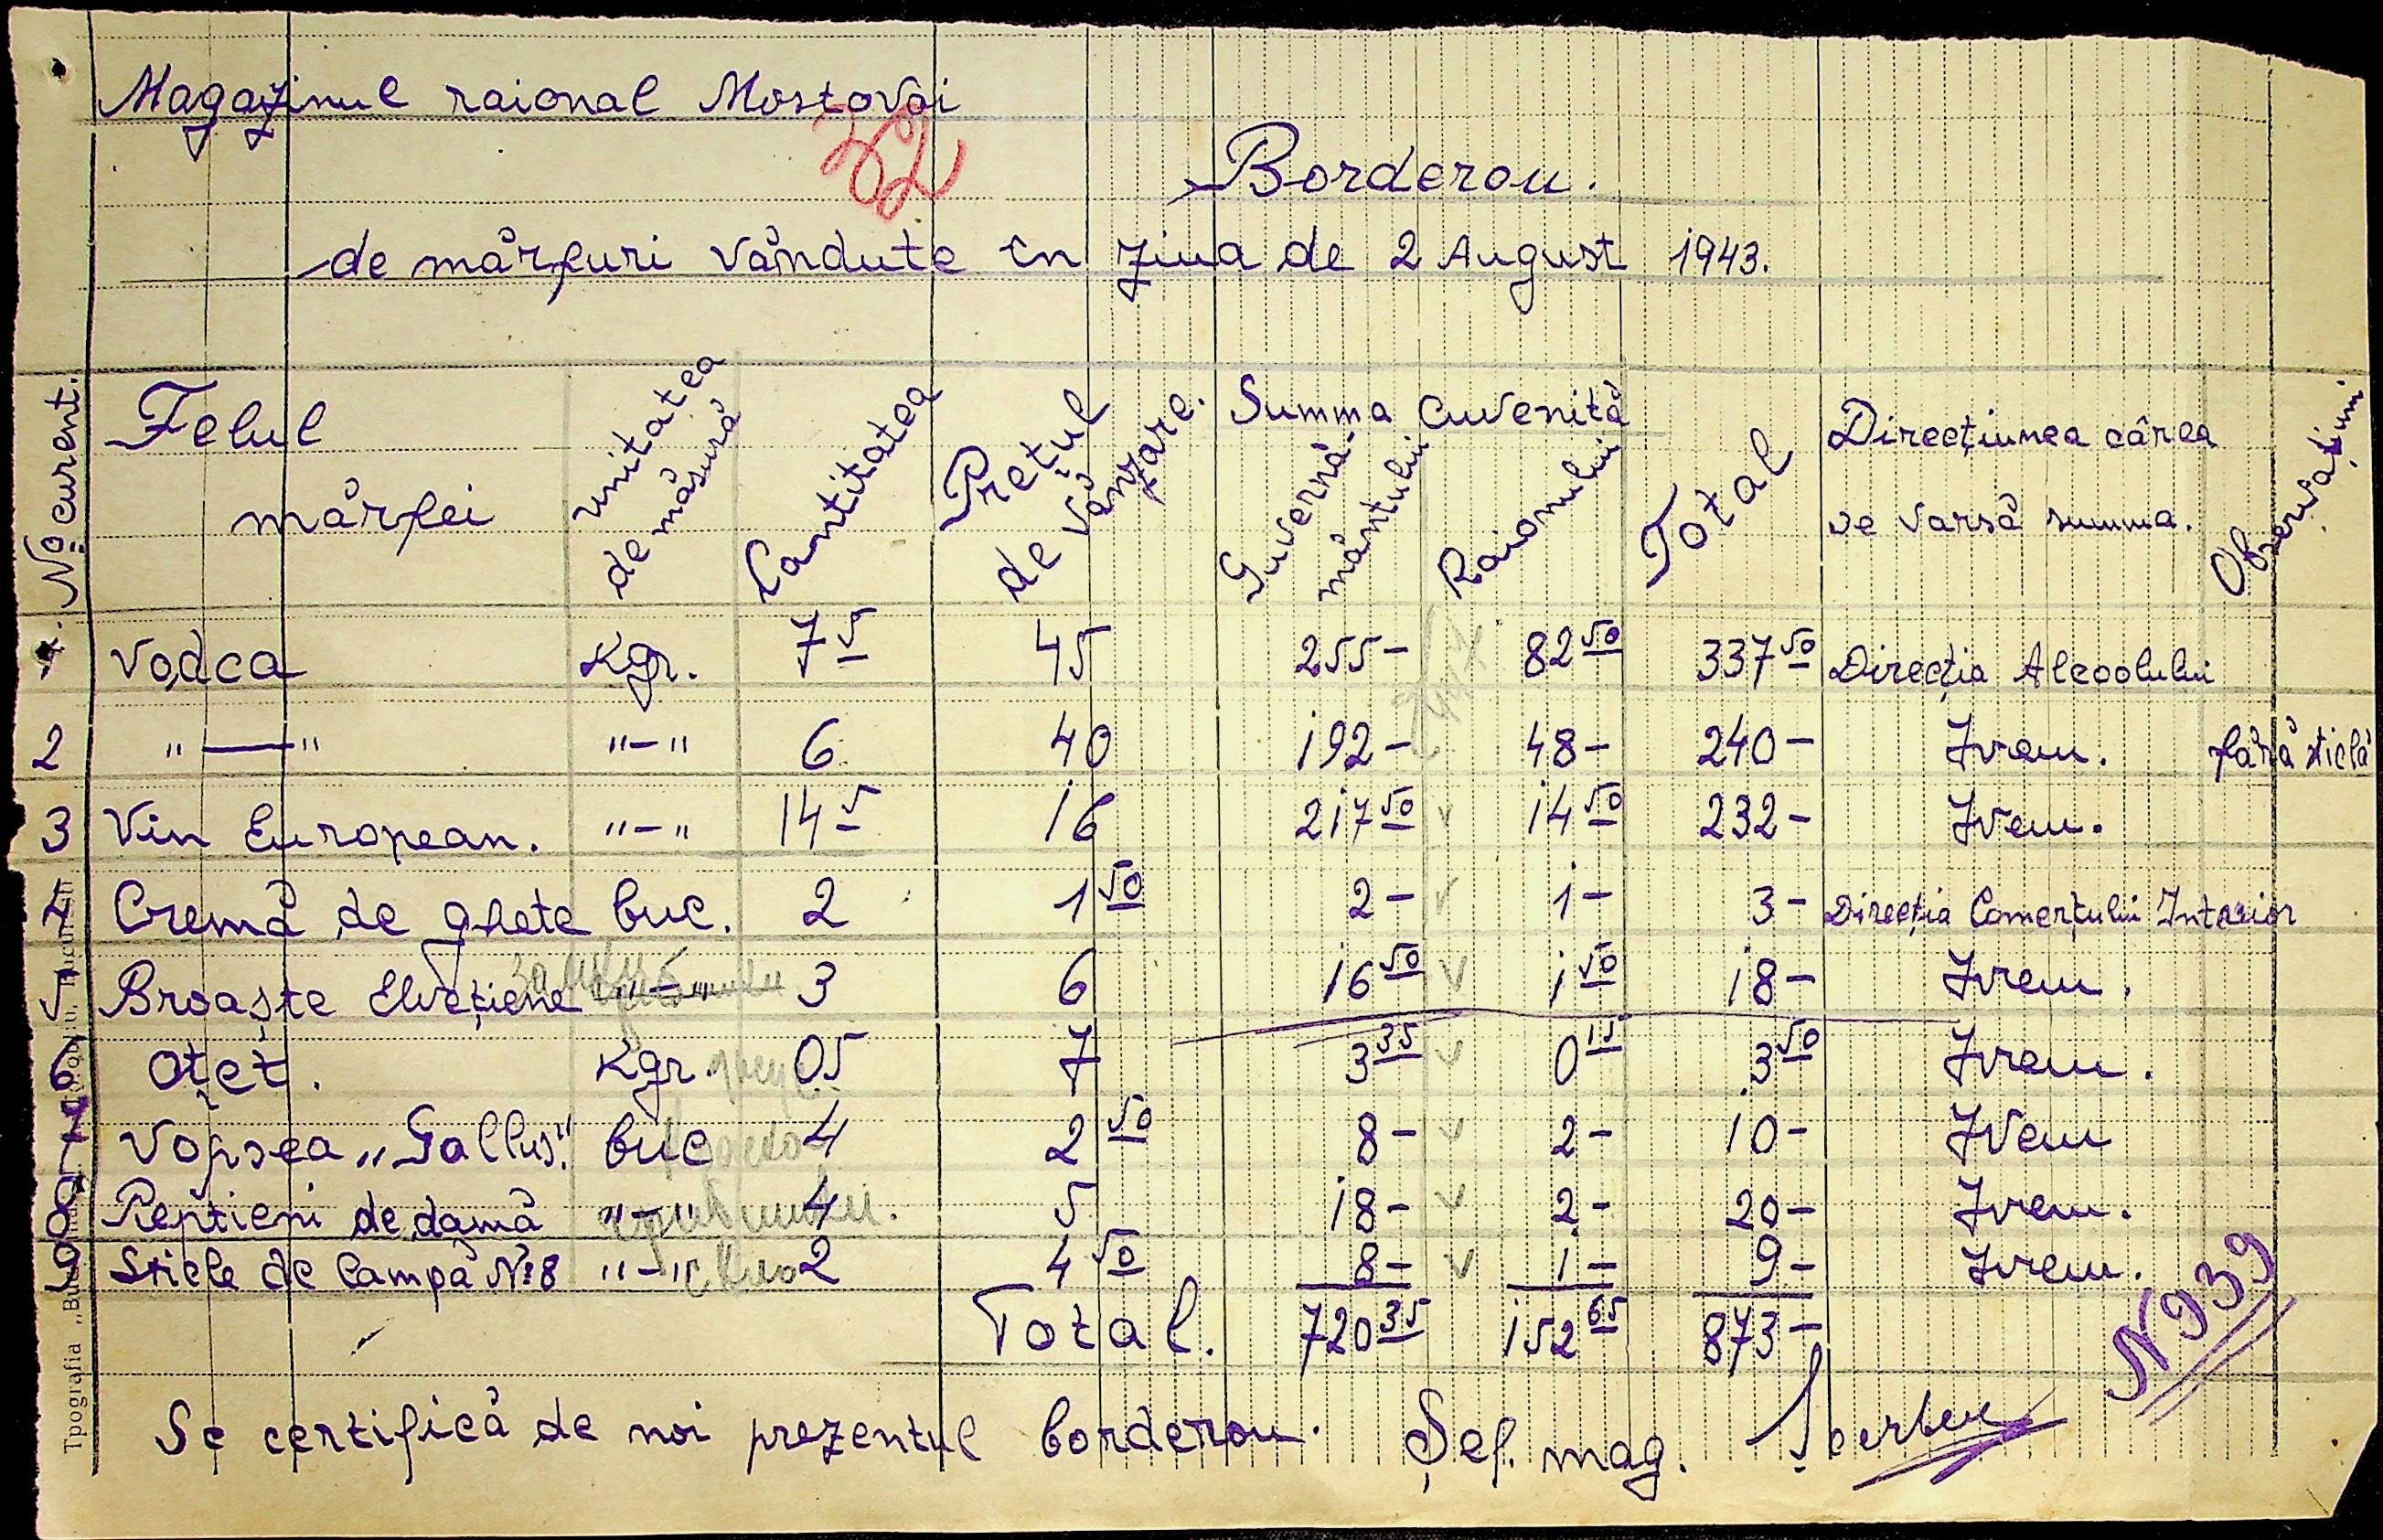 Magazinul raional Mostovoi
362
Borderou.
de mărfuri vândute în ziua de 2 August 1943.
No curent. Felul mărfei unitatea de măsură Cantitatea Prețul de vânzare. Summa cuvenită Guvernă-mântului Raionului Total Direcțiunea cărea se varsă summa. Observațiuni
1. Vodca Kgr. 7 5 45 255- 82 50 337 50 Direcția Alcoolului
2 "—" "-" 6 40 192- 48- 240- Ivem. fără sticlă
3 Vin European. "-" 14 5 16 217 50 v 14 50 232- Ivem.
4 Cremă de ghete buc. 2 1 50 2- v 1- 3- Direcția Comerțului Interior
5 Broaște Elvețiene "-" 3 6 16 50 v 1 50 18- Ivem.
6 Oțet. Kgr. 05 7 3 35 v 0 15 3 50 Ivem.
7 Vopsea „Gallus." buc 4 2 50 8- v 2- 10- Ivem
8 Peptieni de damă "-" 4 5 18- v 2- 20- Ivem.
9 Sticle de lampă No 8 "-" 2 4 50 8- v 1- 9- Ivem.
Total. 720 35 152 65 873-
N 939
Se certifică de noi prezentul borderou. Șef. mag.
Tpografia „Bu